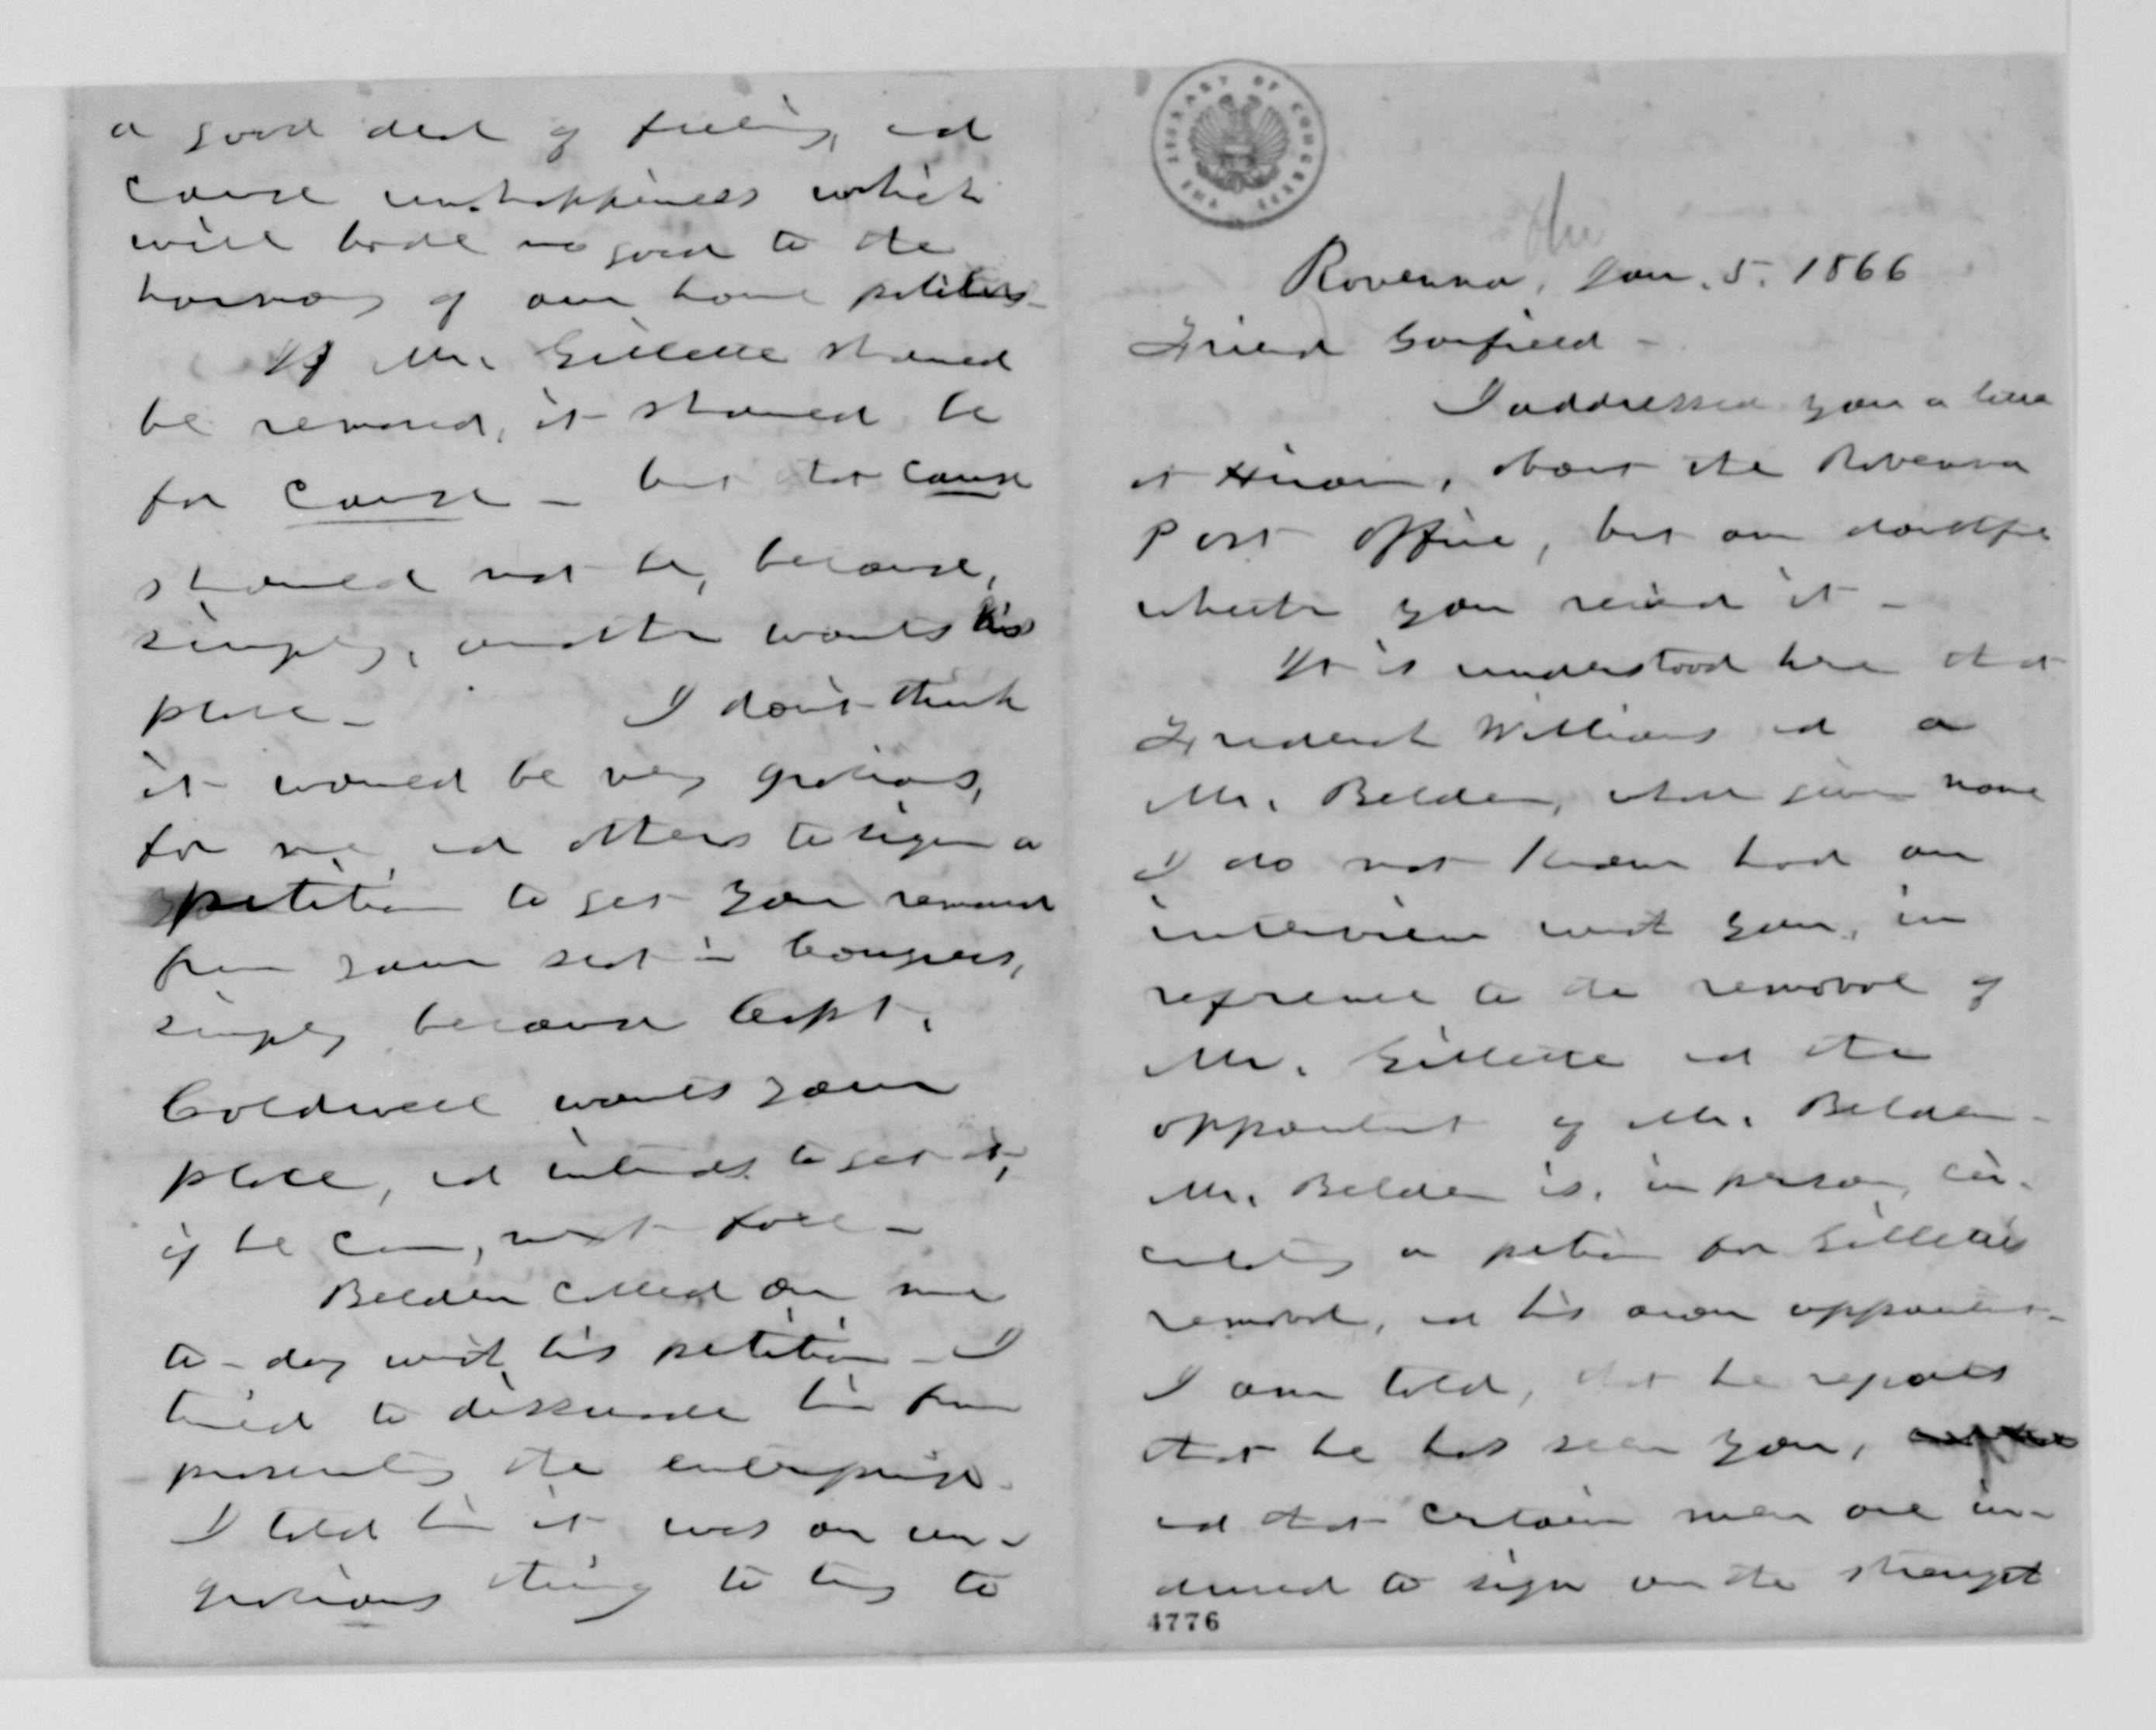 THE LIBRARY OF CONGRESS
Ohio
Ravenna, Jan. 5. 1866
Friend Garfield -
I addressed you a letter
at Hiram, about the Ravenna
Post office, but am doubtful
whether you received it -
It is understood here that
Frederick Williams and a
Mr. Belden, whose given name
I do not know had an
interview with you, in
refrence to the removal of
Mr. Gillette and the
appointment of Mr. Belden -
Mr. Belden is, in person, cir-
culating a petition for Gillette's
removal, and his own appointment -
I am told, that he reports
that he has seen you,
and that certain men are in-
duced to sign on the strength
4776
a good deal of feeling, and
cause unhappiness which
will bode no good to the
harmony of our home politics -
If Mr. Gillette should
be removed, it should be
for cause - but that cause
should not be, because,
simply, another wants his
place - I don't think
it would be very gracious,
for me, and others to sign a
petition to get you removed
from your seat in Congress,
simply because Capt.
Coldwell wants your
place, and intends to get it,
if he can, next fall -
Belden called on me
to-day with his petition - I
tried to dissuade him from
prosecuting the enterprise -
I told him it was an un-
gracious thing to try to